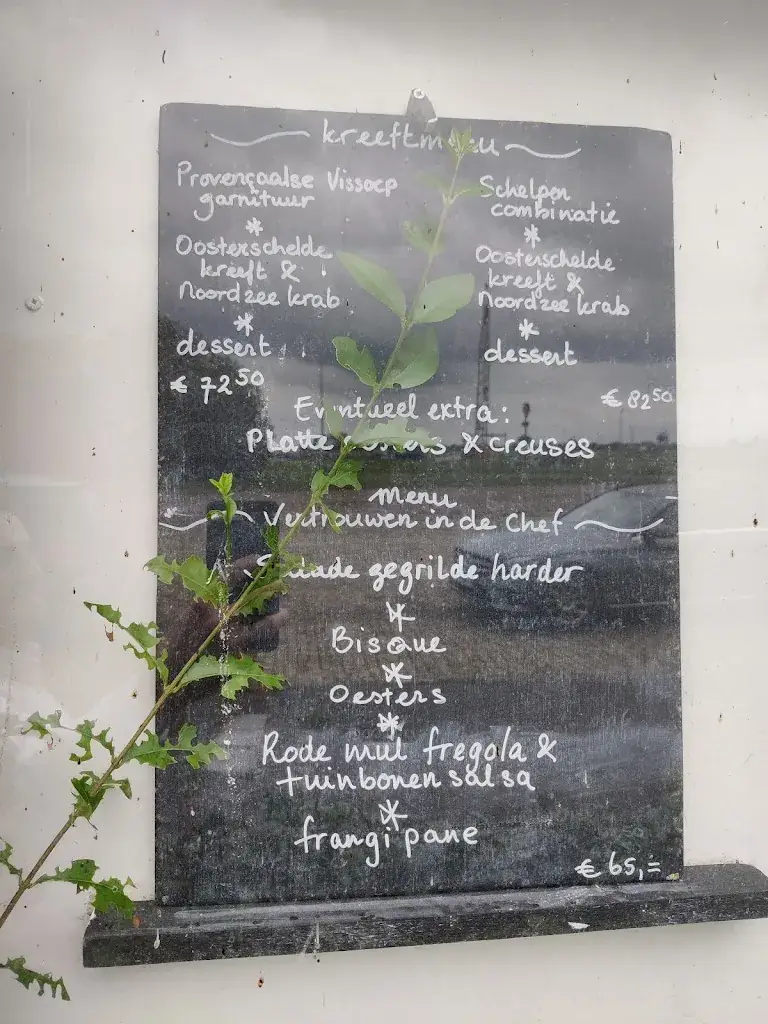 kreeftmenu
Provençaalse Vissoep
garnituur
*
Oosterschelde
kreeft &
Noordzee krab
*
dessert
€ 72 50
Schelpen
combinatie
*
Oosterschelde
kreeft &
Noordzee krab
*
dessert
€ 82 50
Eventueel extra:
Platte oesters & creuses
menu
Vertrouwen in de Chef
Salade gegrilde harder
*
Bisque
*
Oesters
*
Rode mul fregola &
tuinbonen salsa
*
frangipane
€ 65,=